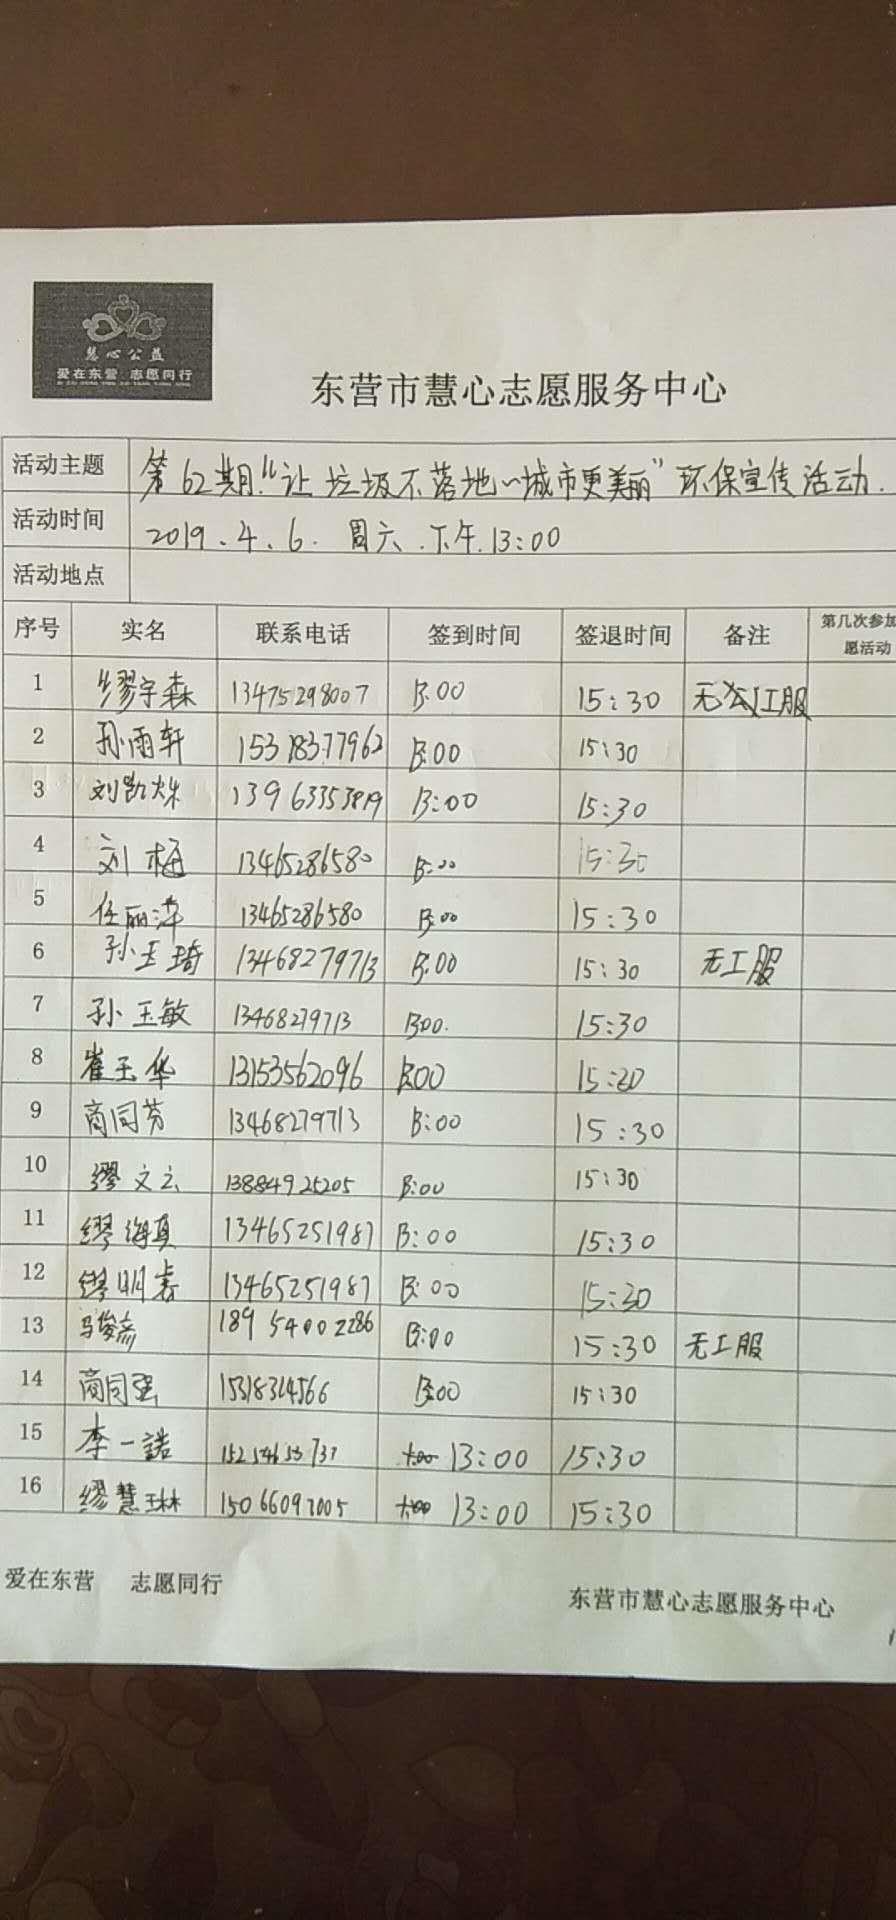 慧心公益
爱在东营 志愿同行
东营市慧心志愿服务中心
活动主题 第62期“让垃圾不落地~城市更美丽”环保宣传活动.
活动时间 2019.4.6. 周六.下午.13:00
活动地点
序号 实名 联系电话 签到时间 签退时间 备注 第几次参加
愿活动
1 缪宇森 13475298007 13:00 15:30 无工服
2 孙雨轩 15318377962 13:00 15:30
3 刘凯烁 13963353819 13:00 15:30
4 刘梅 13465286580 13:00 15:30
5 任丽萍 13465286580 13:00 15:30
6 孙玉琦 13468279713 13:00 15:30 无工服
7 孙玉敏 13468279713 1300. 15:30
8 崔玉华 13153562096 13:00 15:20
9 商同芬 13468279713 13:00 15:30
10 缪文云 13884925205 13:00 15:30
11 缪海真 13465251987 13:00 15:30
12 缪明春 13465251987 13:00 15:30
13 马俊彦 18954002286 13:00 15:30 无工服
14 商同强 15318314566 13:00 15:30
15 李一諾 15254653737 13:00 15:30
16 缪慧琳 15066092005 13:00 15:30
爱在东营 志愿同行
东营市慧心志愿服务中心